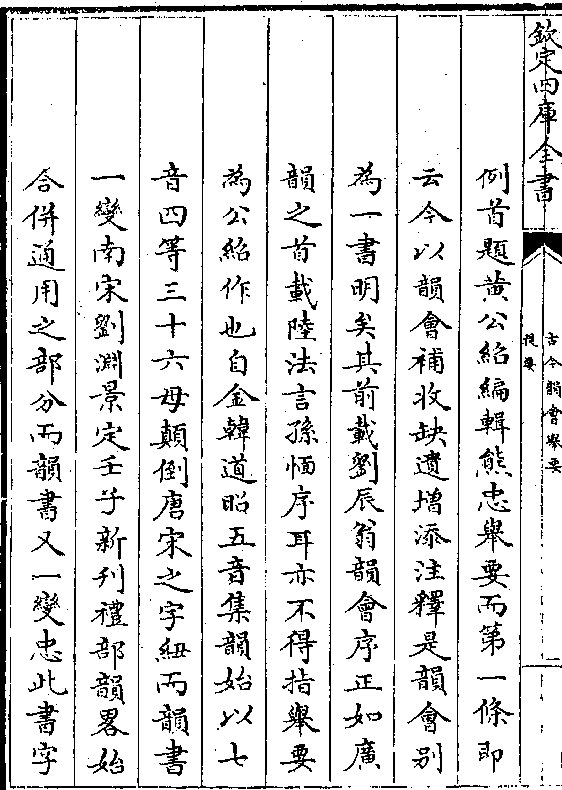 欽定四庫全書
古今韻會舉要
提要
二
例首題黃公紹編輯熊忠舉要而第一條即
云今以韻會補收缺遺增添注釋是韻會别
為一書明矣其前載劉辰翁韻會序正如廣
韻之首載陸法言孫愐序耳亦不得指舉要
為公紹作也自金韓道昭五音集韻始以七
音四等三十六母顛倒唐宋之字紐而韻書
一變南宋劉淵景定壬子新刋禮部韻畧始
合併通用之部分而韻書又一變忠此書字